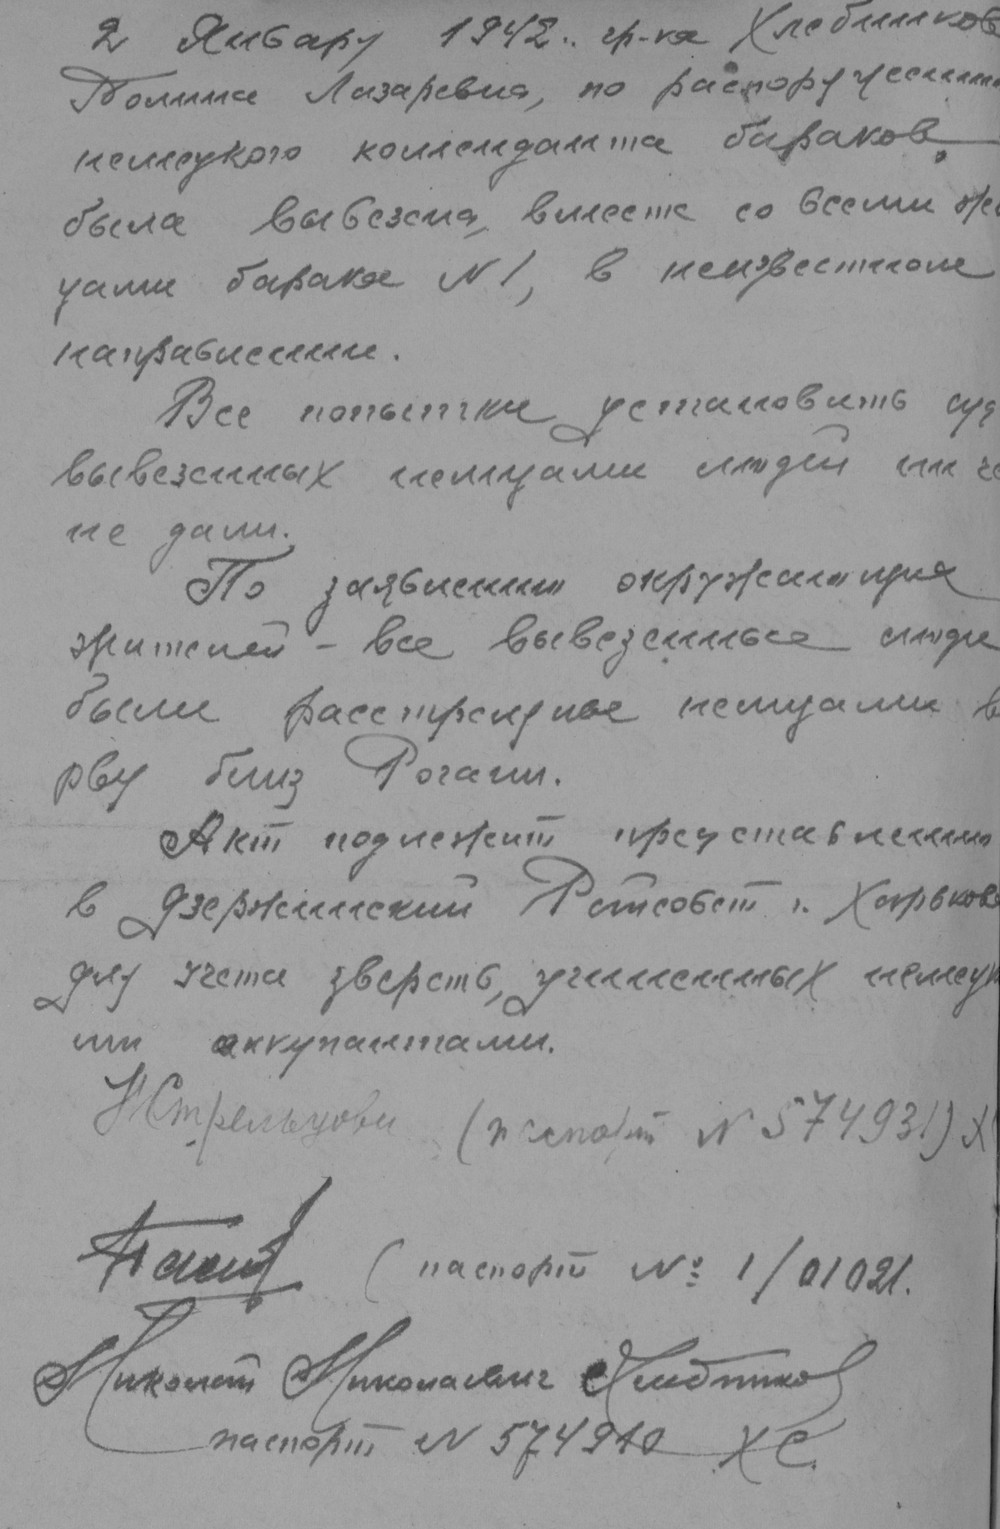 2 Январу 1942.. гр-ка Хлебников
Полина Лазаревна, по распоружению
немецкого коменданта бараков,
была вывезена, вместе со всеми жи
цами барака N 1, в неизвестном
направлении.
Все попытки установить суд
вывезенных немцами людей ни че
не дали.
По заявлению окружающих
жителей - все вывезенные люди
были расстреляные немцами в
рву близ Рогани.
Акт подлежит представлению
в Дзержинский Райсовет г. Харькова
для учета зверств, учиненных немецк
ми оккупантами.
НСтрельцова (паспорт N 574931) Х
( паспорт №: 1/01021.
Николай Николаевич Хлебников
паспорт N 574910 ХС.